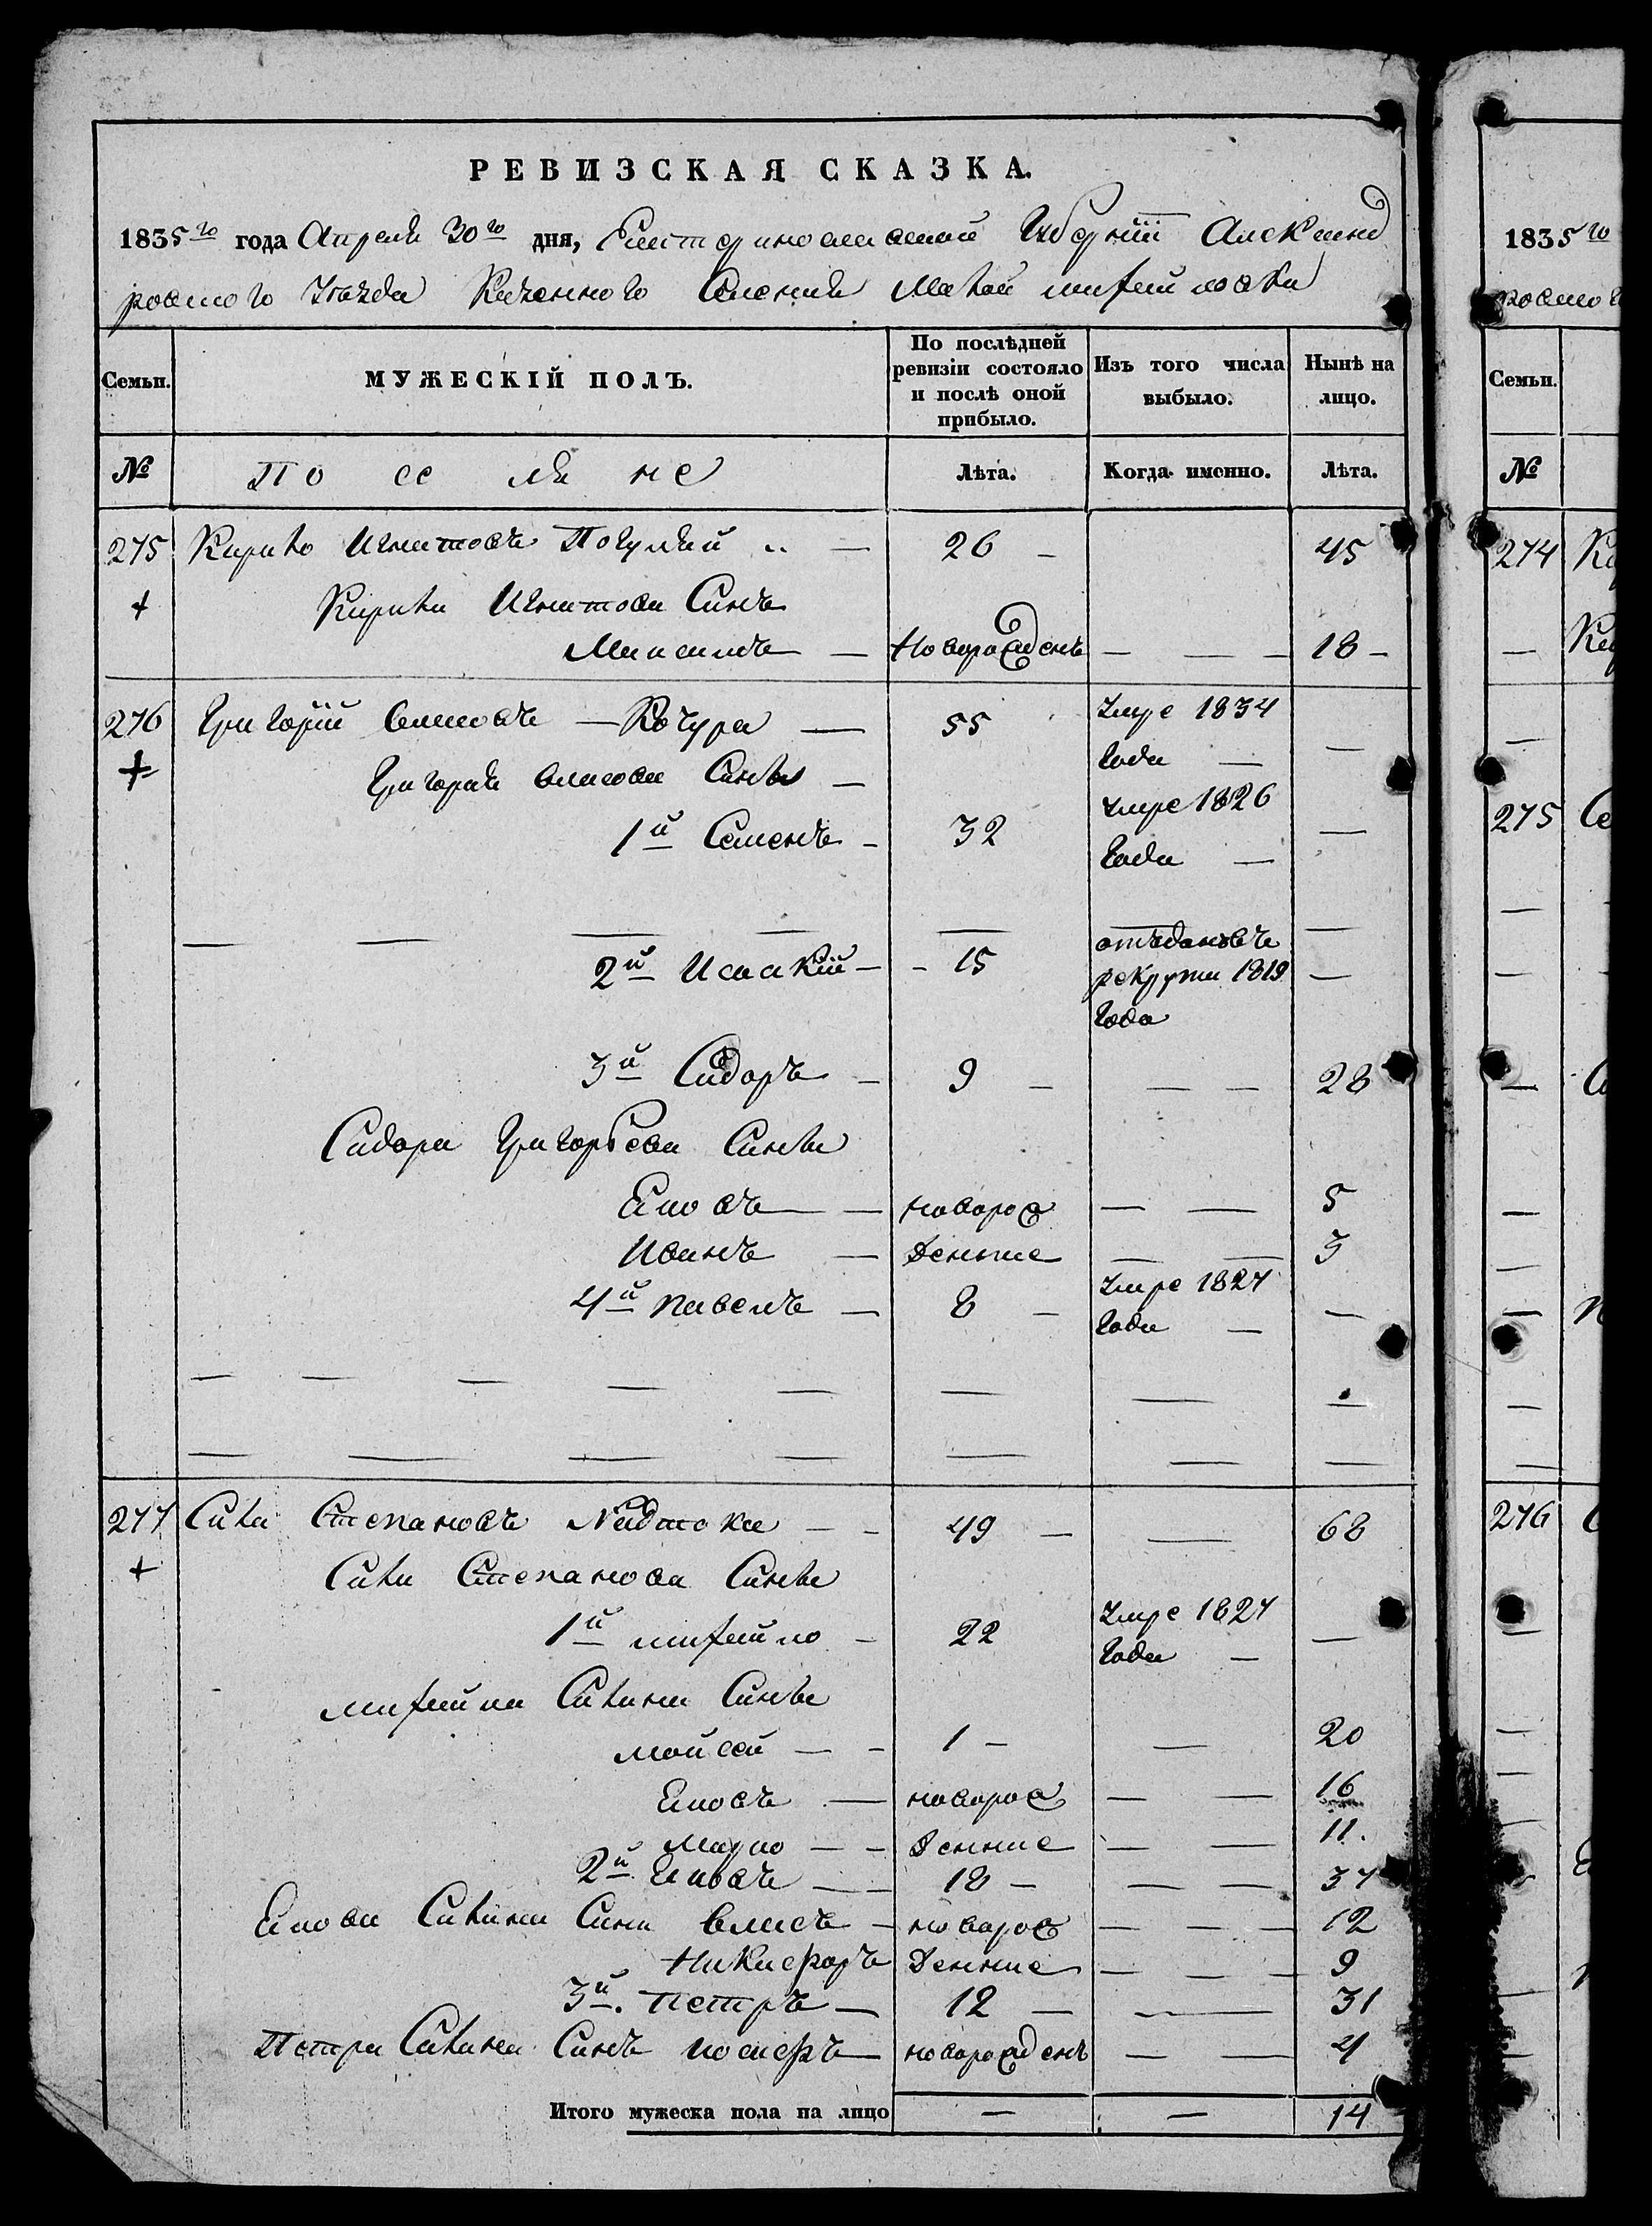 РЕВИЗСКАЯ СКАЗКА.
1835го года Апреля 30го дня, Екатеринославской Губернии Александ
ровского Уезда Казенного Селения Малой михайловки
Семьи. МУЖЕСКІЙ ПОЛЪ. По послѣдней ревизіи состояло и послѣ оной прибыло. Изъ того числа выбыло. Нынѣ на лицо.
№ Поселяне Лѣта. Когда именно. Лѣта.
275 Кирило Игнатовъ 26 45
+ Кирила Игнатова Синъ
Максимъ Новорожденъ 18
276 Григорій Власовъ Кочура 55 умре 1834 года
+ Григория власова Сини
1й Семенъ 32 умре 1826 года
2й Исаакій 15 отъданъ въ рекруты 1819 года
3й Сидоръ 9 28
Сидора Григорьева Сини
Яковъ новорож 5
Иванъ денные 3
4й павелъ 8 умре 1827 года
277 Сила Степановъ 49 68
+ Сили Степанова Сини
1й михайло 22 умре 1827 года
михайла Силина Сини
мойсей 1 20
Яковъ новорож 16
денные 11.
2й Яковъ 18 37
Якова Силина Сини власъ новорож 12
Никифоръ денные 9
3й. Петръ 12 31
Петра Силина Синъ иосифъ новорожденъ 4
Итого мужеска пола на лицо 14
1835го
Семьи.
№
274
275
276